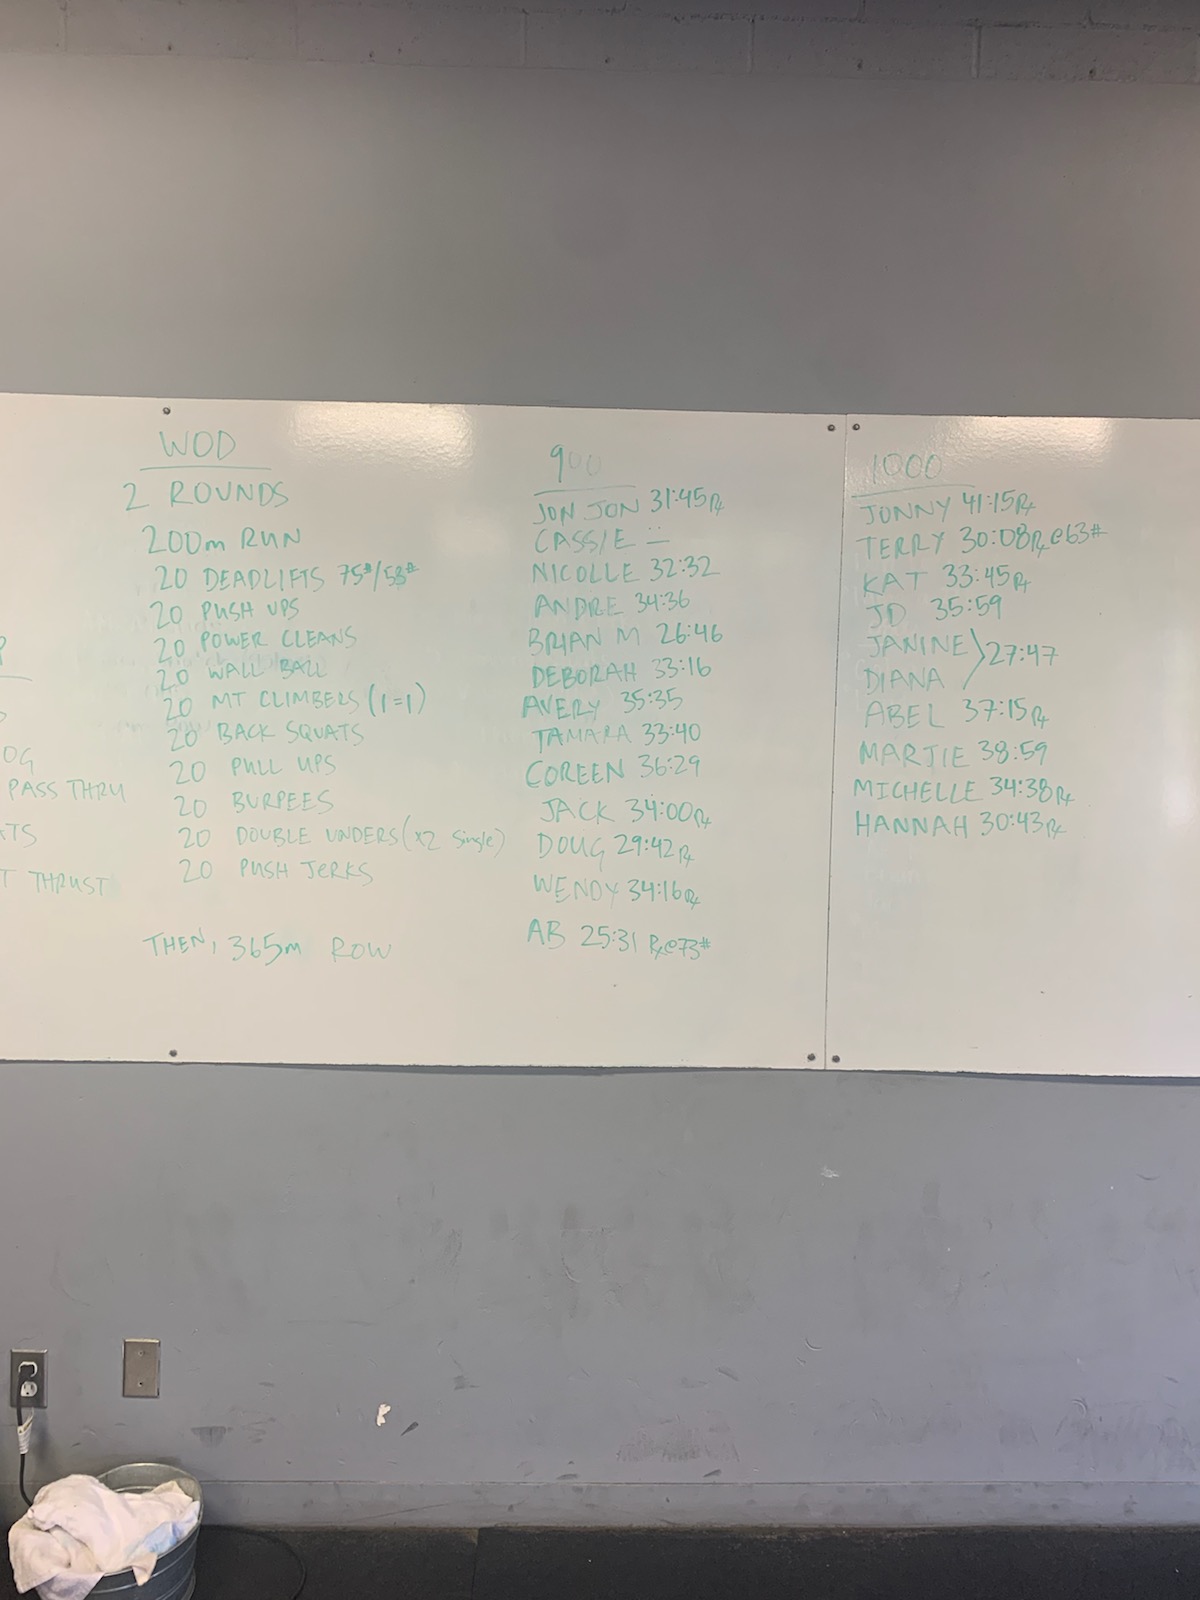 OG
PASS THRU
THRUST
WOD
2 ROUNDS
200m RUN
20 DEADLIFTS 75#/53#
20 PUSH UPS
20 POWER CLEANS
20 WALL BALL
20 MT CLIMBERS (1=1)
20 BACK SQUATS
20 PULL UPS
20 BURPEES
20 DOUBLE UNDERS (x2 single)
20 PUSH JERKS
THEN, 365m ROW
900
JON JON 31:45 Rx
CASSIE
NICOLLE 32:32
ANDRE 34:36
BRIAN M 26:46
DEBORAH 33:16
AVERY 35:35
TAMARA 33:40
COREEN 36:29
JACK 34:00 Rx
DOUG 29:42 Rx
WENDY 34:16 Rx
AB 25:31 Rx @73#
1000
JONNY 41:15 Rx
TERRY 30:08 Rx @63#
KAT 33:45 Rx
JD 35:59
JANINE } 27:47
DIANA
ABEL 37:15 Rx
MARJIE 38:59
MICHELLE 34:38 Rx
HANNAH 30:43 Rx